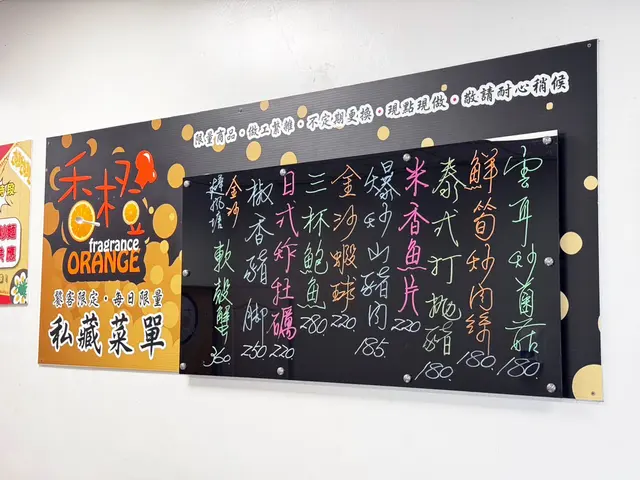 限量商品•做工繁雜•不定期更換•現點現做•敬請耐心稍候
香橙
fragrance
ORANGE
饕客限定•每日限量
私藏菜單
雲耳炒菌菇 180.
鮮筍炒肉絲 180.
泰式打拋豬 180.
米香魚片 220
爆炒山豬肉 185.
金沙蝦球 220
三杯鮑魚 280
日式炸牡礪 220
椒香豬腳 250
金沙
避風塘
軟殼蟹 360.